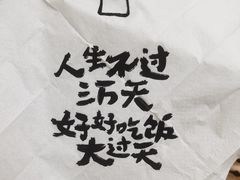 人生不过
三万天
好好吃饭
大过天